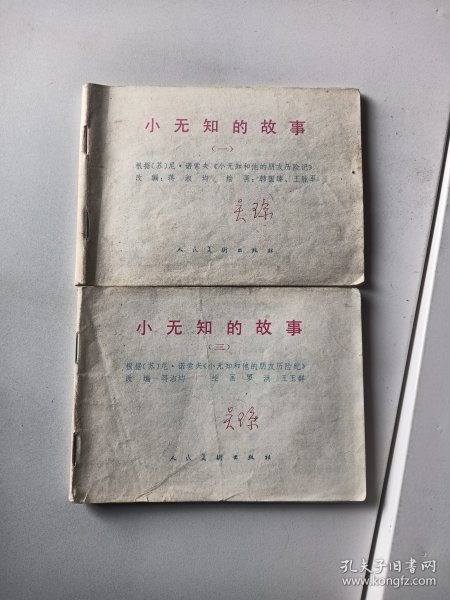 小无知的故事
（一）
根据（苏）尼·诺索夫《小无知和他的朋友历险记》
改 编：蒋淑均 绘 画：韩国臻、王轶平
吴
人民美术出版社
小无知的故事
（三）
根据（苏）尼·诺索夫《小无知和他的朋友历险纪》
改 编 蒋淑均 绘 画 罗 洪 王玉群
吴
人民美术出版社
孔夫子旧书网
www.kongfz.com